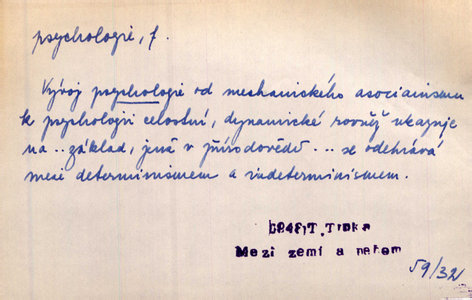 psychologie, f.
Vývoj psychologie od mechanického asocianismu
k psychologii celostní, dynamické rovněž ukazuje
na .. základ, jenž v přírodovědě ... se odehrává
mezi determinismem a indeterminismem.
Trnka
Mezi zemí a nebem
59/32